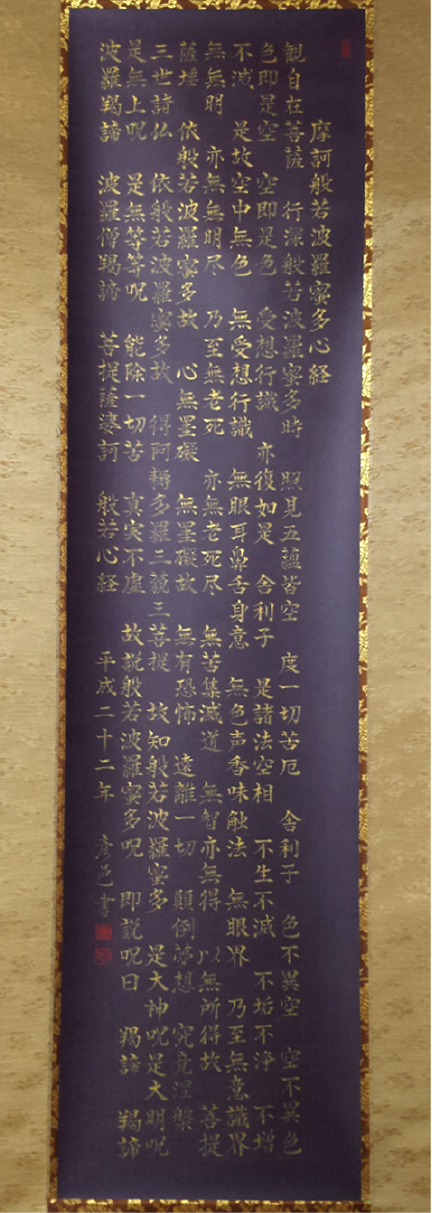 摩訶般若波羅蜜多心経
観自在菩薩　行深般若波羅蜜多時　照見五蘊皆空　度一切苦厄　舎利子　色不異空　空不異色
色即是空　空即是色　受想行識　亦復如是　舎利子　是諸法空相　不生不滅　不垢不浄　不増
不減　是故空中無色　無受想行識　無眼耳鼻舌身意　無色声香味触法　無眼界　乃至無意識界
無無明　亦無無明尽　乃至無老死　亦無老死尽　無苦集滅道　無智亦無得　以無所得故　菩提
薩埵　依般若波羅蜜多故　心無罣礙　無罣礙故　無有恐怖　遠離一切　顛倒夢想　究竟涅槃
三世諸仏　依般若波羅蜜多故　得阿耨多羅三藐三菩提　故知般若波羅蜜多　是大神呪是大明呪
是無上呪　是無等等呪　能除一切苦　真実不虚　故説般若波羅蜜多呪　即説呪曰　羯諦　羯諦
波羅羯諦　波羅僧羯諦　菩提薩婆訶　般若心経　平成二十二年　彦邑書